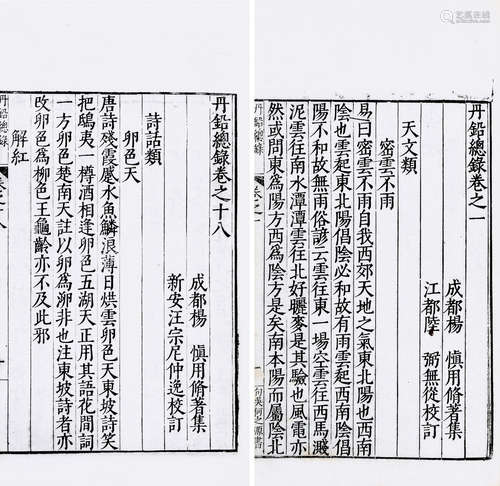 丹鉛總錄卷之一
成都楊 愼用脩著集
江都陸 弼無從校訂
天文類
密雲不雨
易曰密雲不雨自我西郊天地之氣東北陽也西南
陰也雲起東北陽倡陰必和故有雨雲起西南陰倡
陽不和故無雨俗諺云雲往東一場空雲往西馬濺
泥雲往南水潭潭雲往北好曬麥是其驗也風電亦
然或問東爲陽方西爲陰方是矣南本陽而屬陰北
丹鉛總錄
卷之一
丹鉛總錄卷之十八
成都楊 愼用脩著集
新安汪宗尼仲逸校訂
詩話類
卯色天
唐詩殘霞蹙水魚鱗浪薄日烘雲卯色天東坡詩笑
把鴟夷一樽酒相逢卯色五湖天正用其語花間詞
一方卯色楚南天註以卯爲泖非也注東坡詩者亦
改卯色爲柳色王龜齡亦不及此邪
解紅
丹鉛總錄
卷之十八